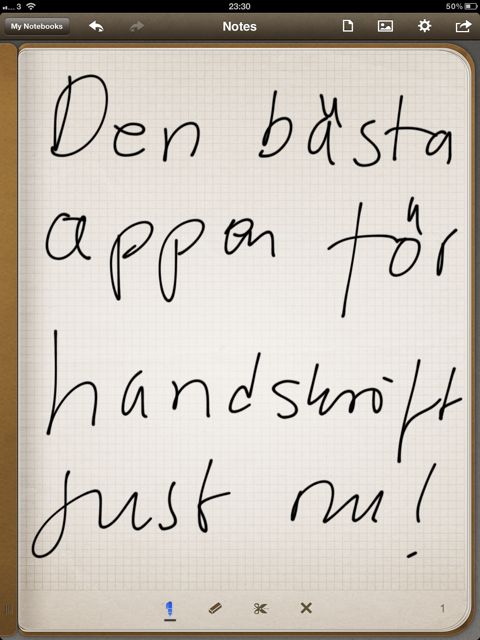 ...3 23:30 50%
My Notebooks Notes
Den bästa
appen för
handskrift
just nu!
1